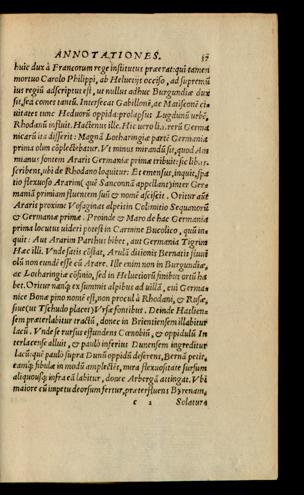 ANNOTATIONES. 37
huic dux à Francorum rege institutus præerat: qui tamen
mortuo Carolo Philippi, ab Helvetijs occiso, ad supremũ
ius regiũ adscriptus est, ut nullus adhuc Burgundiæ dux
sit, sed comes tantũ. Intersecat Gabilloně, ac Matisconẽ ci-
uitates tunc Heduorũ oppida: prolapsus Lugdunũ urbẽ,
Rhodanũ influit. Hactenus ille. Hic uero li. rerũ Germa
nicarũ ita disserit: Magnã Lotharingiæ partẽ Germania
prima olim cõplectebatur. Vt minus mirandũ sit, quod Am
mianus fontem Araris Germaniæ primæ tribuit: sic libro.
scribens, ubi de Rhodano loquitur: Et emensus, inquit, spa
tio flexuoso Ararim (quẽ Sauconnã appellant) inter Ger-
maniã primam fluentem suũ &amp; nomẽ asciscit. Oritur aũt
Araris proxime Vosaginas alpes in Collimitio Sequanorũ
&amp; Germaniæ primæ. Proinde &amp; Maro de hac Germania
prima locutus uideri potest in Carmine Bucolico, quũ in-
quit: Aut Ararim Parthus bibet, aut Germania Tigrim
Hæc ill. Vnde satis cõstat, Arulã ditionis Bernatis fluuiũ
olũ non eundẽ esse cũ Arare. Ille enim non in Burgundiæ,
ac Lotharingiæ cõfinio, sed in Heluetiorũ finibus ortũ ha
bet. Oritur nanq; ex summit alpibus ad uillã, cui Germa-
nice Bona pino nomẽ est, non procul à Rhodani, &amp; Rusæ,
siue (ut Tschudo placet) Vrsæ fontibus. Deinde Haslien-
sem præterlabitur tractũ, donec in Brientiensem illabitur
lacũ. Vnde rursus effundens Cœnobiũ, &amp; oppidulũ In
terlacense alluit, &amp; paulò inferius Dunensem ingreditur
Lacũ: quẽ paulò supra Dunũ oppidũ deserens, Bernã petit,
eamq; fibulæ in modũ amplectẽs, mira flexuositate sursum
aliquousq; infra eã labitur, donec Arbergã attingat. Vbi
maiore cũ impetu deorsum fertur, præterfluens Byrenam,
c 2 Solatura